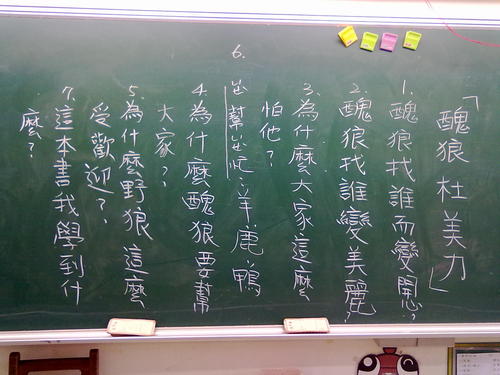 「醜狼杜美力」
1. 醜狼找誰而變
2. 醜狼找誰變美麗?
3. 為什麼大家這麼
怕他?
6.
幫 忙：羊.鹿.鴨
4. 為什麼醜狼要幫
大家?
5. 為什麼野狼這麼
受歡迎?
7. 這本書我學到什
麼?